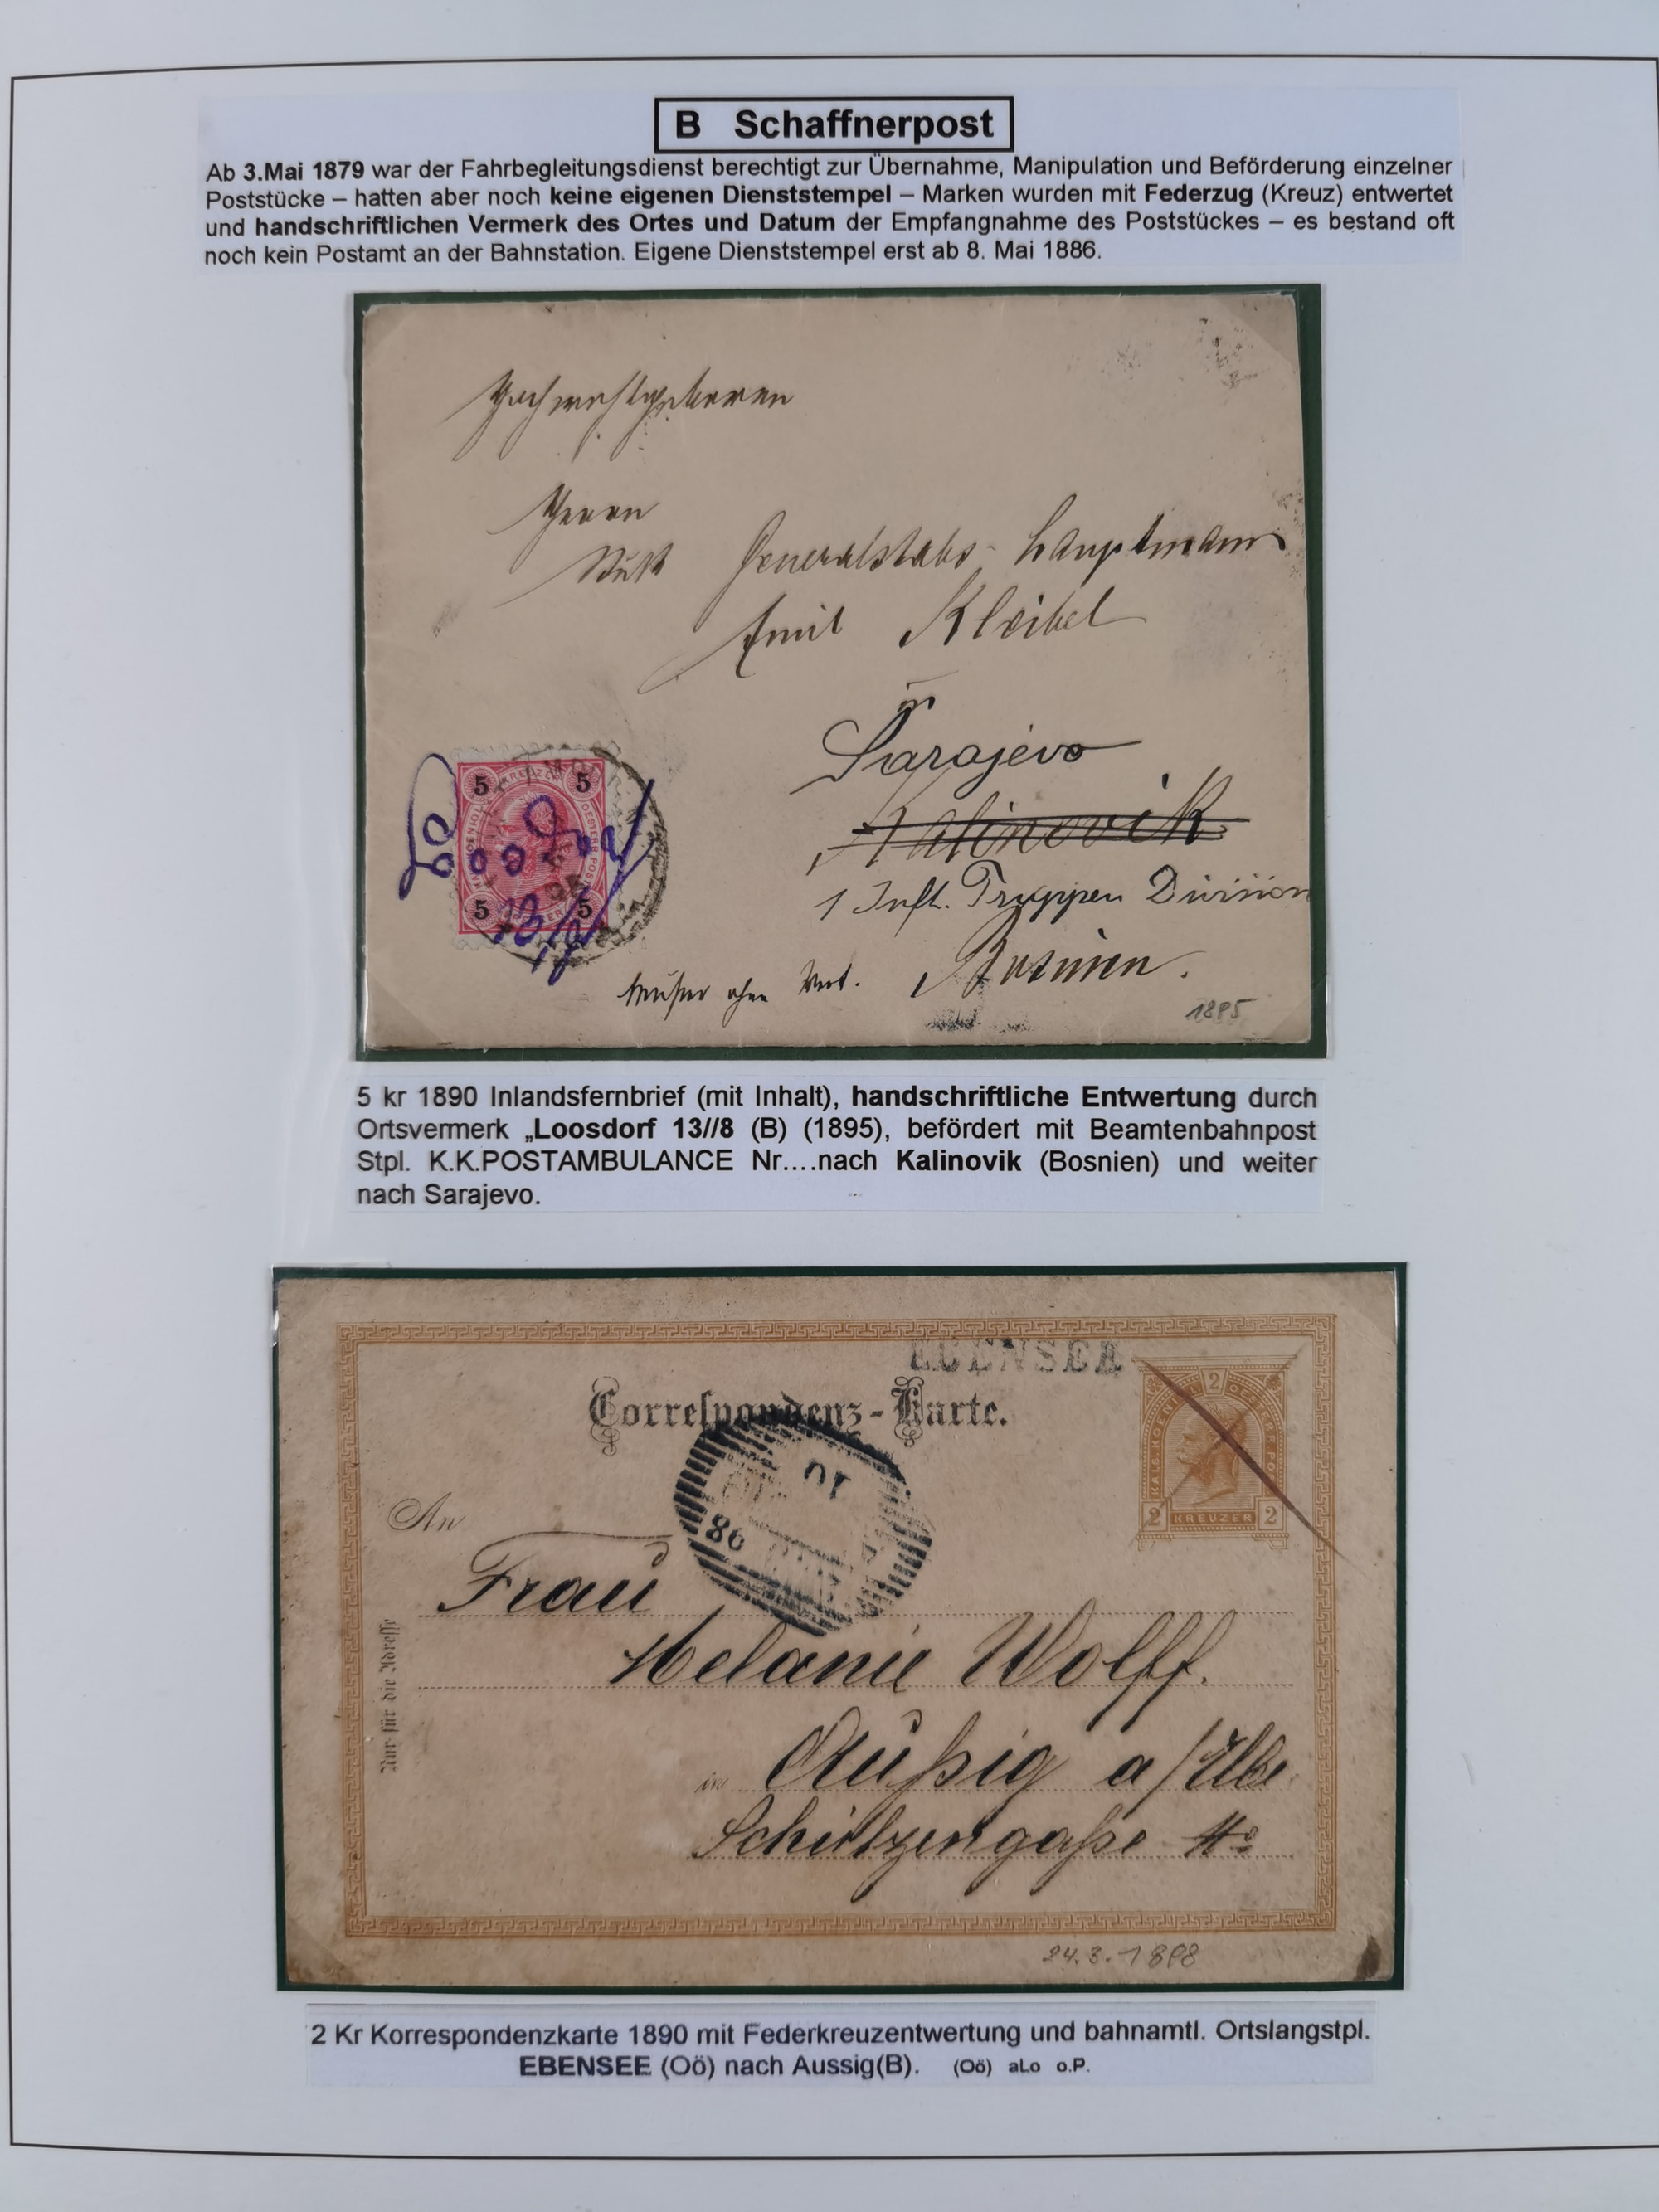 B Schaffnerpost
Ab 3.Mai 1879 war der Fahrbegleitungsdienst berechtigt zur Übernahme, Manipulation und Beförderung einzelner
Poststücke – hatten aber noch keine eigenen Dienststempel – Marken wurden mit Federzug (Kreuz) entwertet
und handschriftlichen Vermerk des Ortes und Datum der Empfangnahme des Poststückes – es bestand oft
noch kein Postamt an der Bahnstation. Eigene Dienststempel erst ab 8. Mai 1886.
Hochwohlgeboren
Herrn
Generalstabs-Hauptmann
Emil Kleibel
in
Sarajevo
Kalinovik
1 Inft. Truppen Division
Muster ohne Wert. Bosnien.
1895
5 KREUZER 5
5 5
13/8
5 kr 1890 Inlandsfernbrief (mit Inhalt), handschriftliche Entwertung durch
Ortsvermerk „Loosdorf 13//8 (B) (1895), befördert mit Beamtenbahnpost
Stpl. K.K.POSTAMBULANCE Nr....nach Kalinovik (Bosnien) und weiter
nach Sarajevo.
EBENSEE
Correspondenz-Karte.
2
2 KREUZER 2
An
Frau
98
Melanie Wolff.
in Außig a/Elbe
Schützengaße
Nur für die Adresse
24.3.1898
2 Kr Korrespondenzkarte 1890 mit Federkreuzentwertung und bahnamtl. Ortslangstpl.
EBENSEE (Oö) nach Aussig(B). (Oö) aLo o.P.